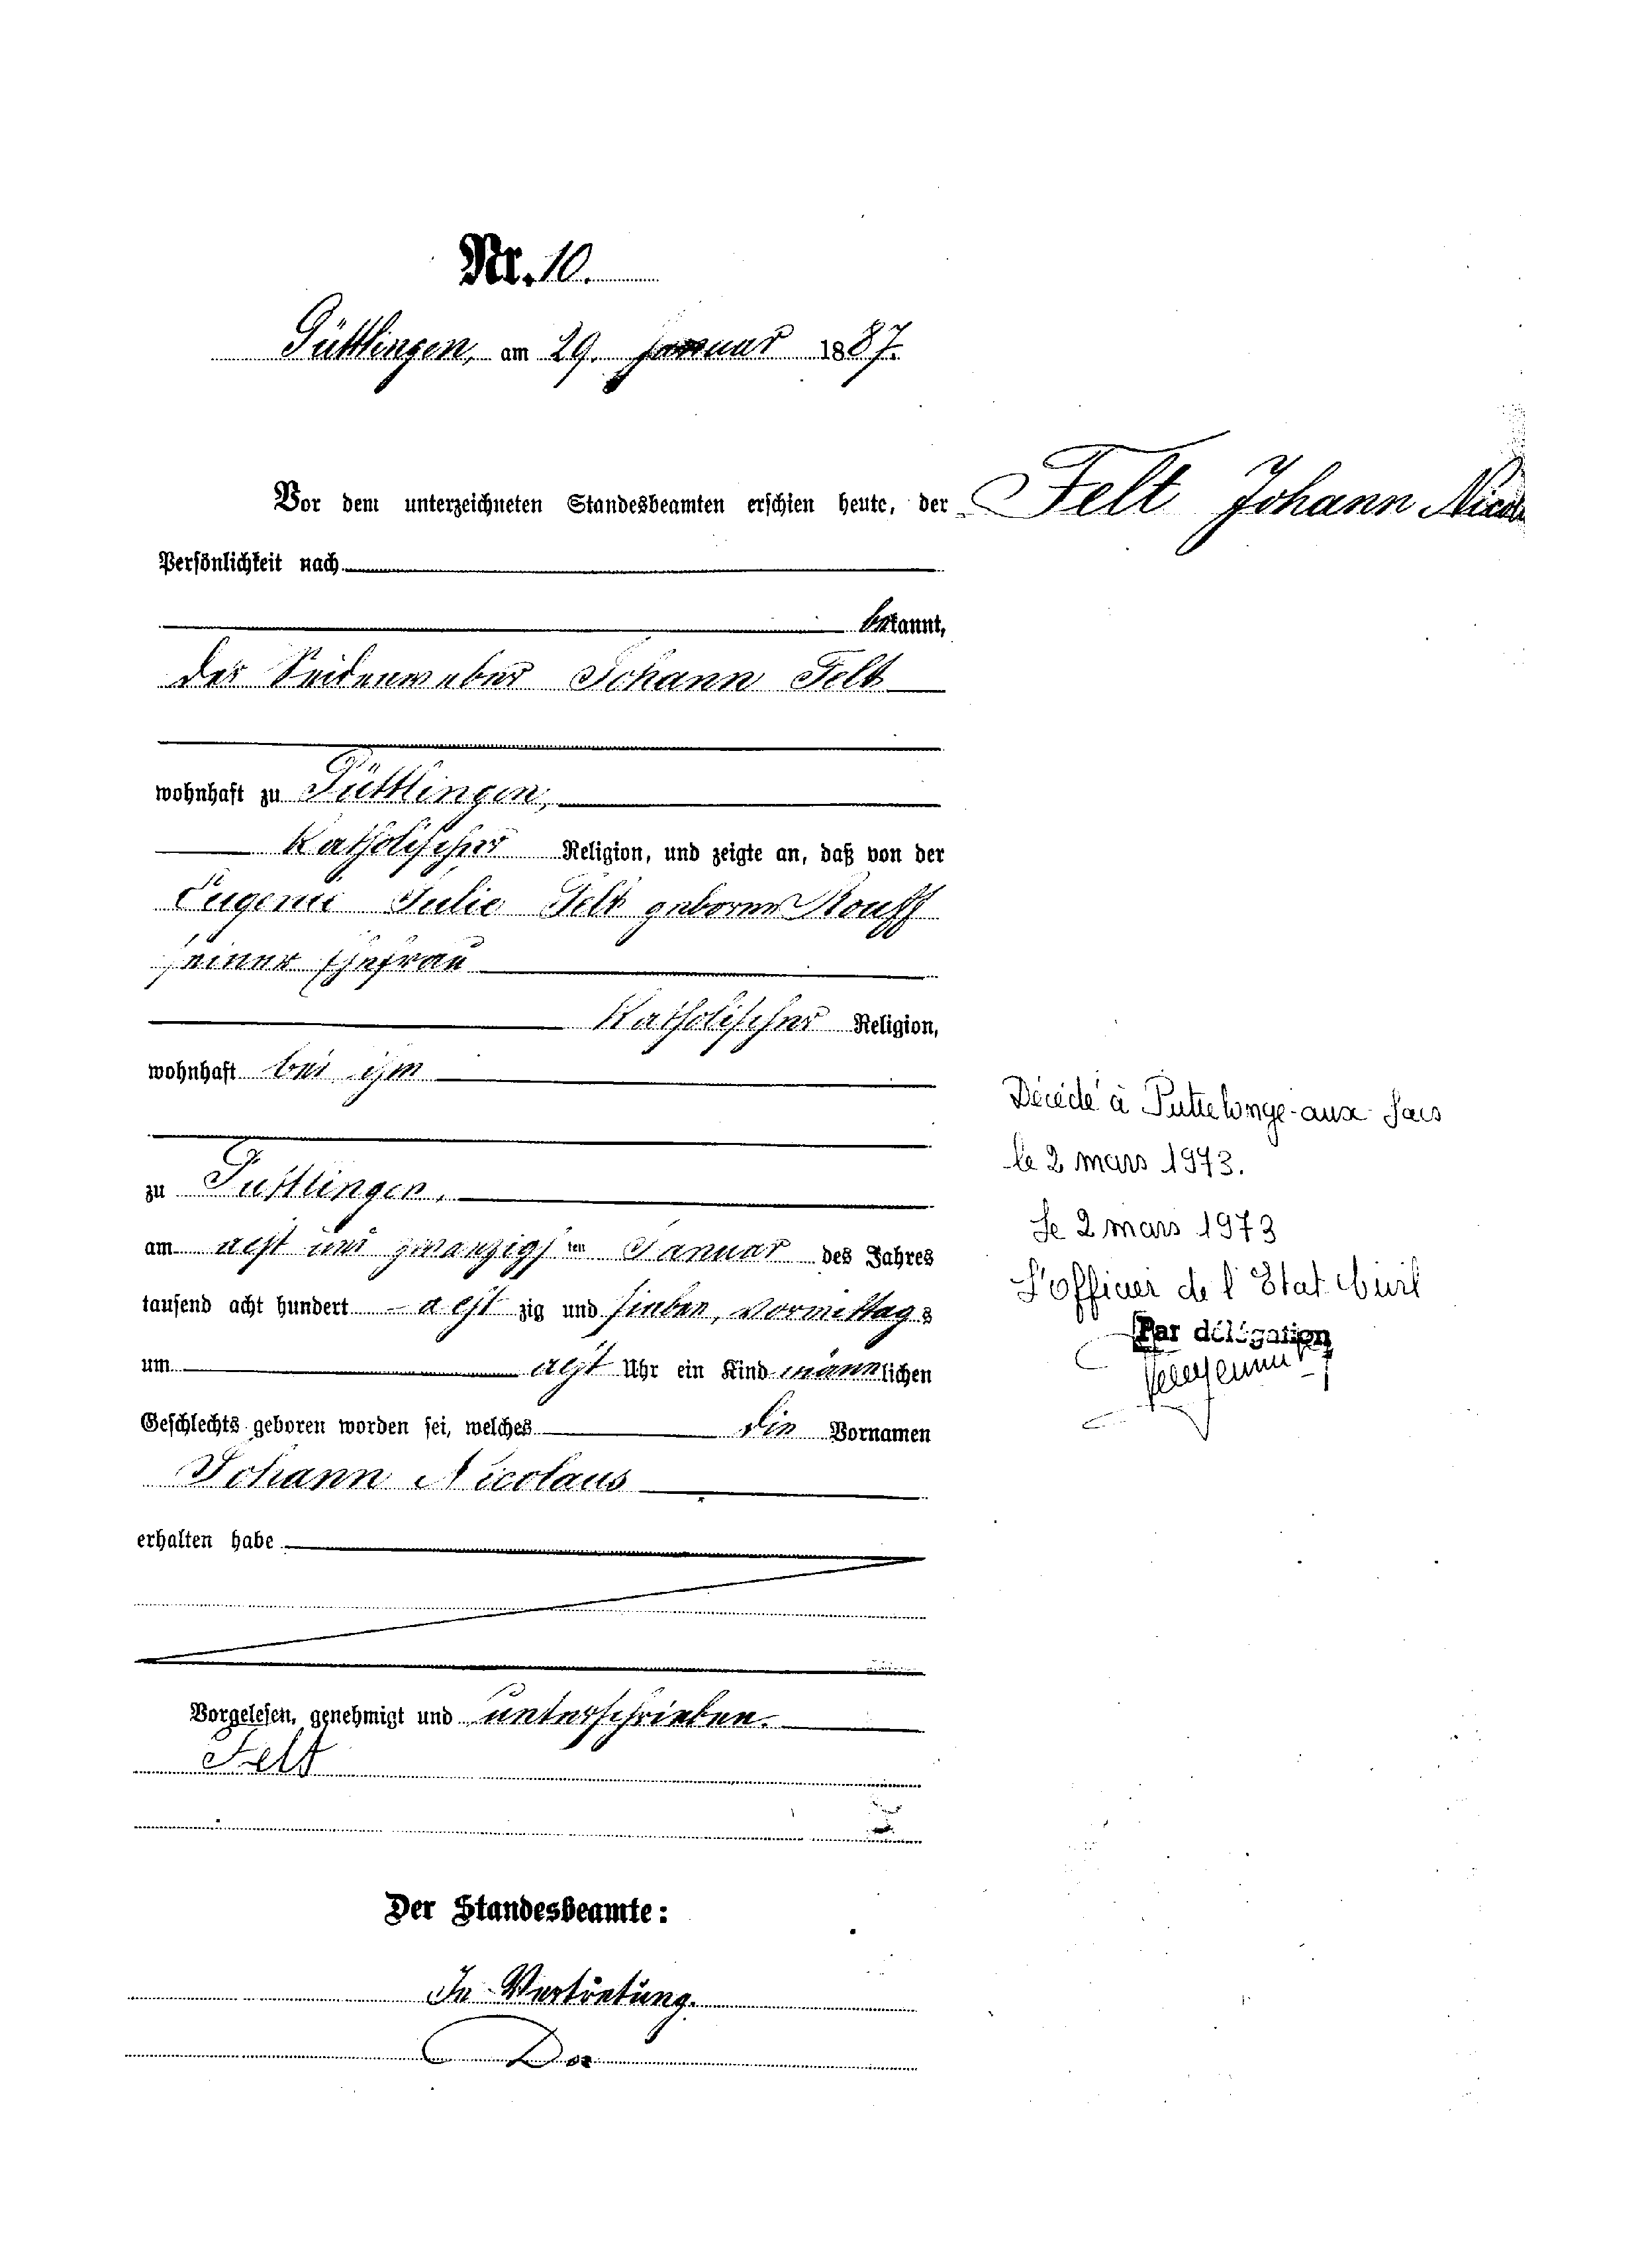 Nr. 10.
Püttlingen, am 29. Januar 1887.
Vor dem unterzeichneten Standesbeamten erschien heute, der
Persönlichkeit nach
bekannt,
der Seidenweber Johann Felt
wohnhaft zu Püttlingen,
katholischer Religion, und zeigte an, daß von der
Eugenie Julie Felt geborene Rouff
seiner Ehefrau
katholischer Religion,
wohnhaft bei ihm
zu Püttlingen,
am acht und zwanzigsten Januar des Jahres
tausend acht hundert achtzig und sieben, Vormittags
um acht Uhr ein Kind männlichen
Geschlechts geboren worden sei, welches die Vornamen
Johann Nicolaus
erhalten habe
Vorgelesen, genehmigt und unterschrieben.
Felt
Der Standesbeamte:
In Vertretung.
Felt Johann Nicol
Décédé à Puttelange-aux-Lacs
le 2 mars 1973.
Le 2 mars 1973
L'officier de l'Etat Civil
Par délégation